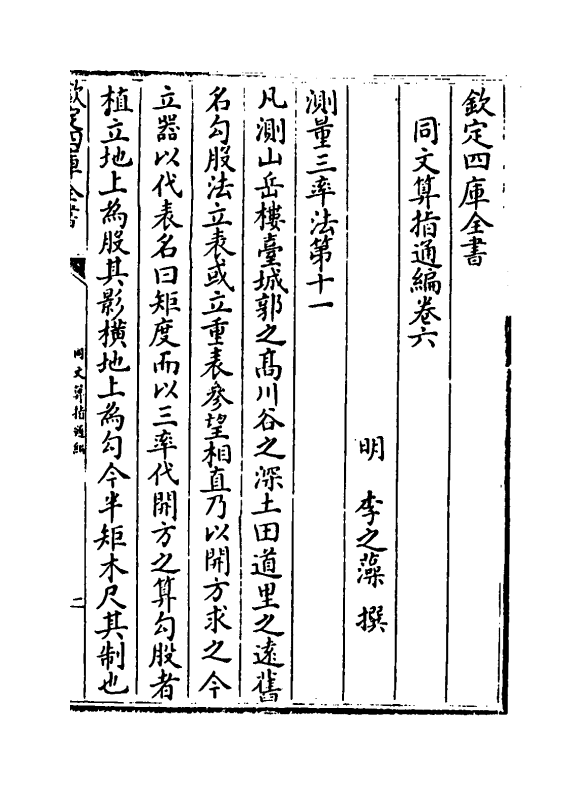 欽定四庫全書
同文算指通編卷六
明 李之藻 撰
測量三率法第十一
凡測山岳樓臺城郭之髙川谷之深土田道里之逺舊
名勾股法立表或立重表參望相直乃以開方求之今
立器以代表名曰矩度而以三率代開方之算勾股者
植立地上為股其影橫地上為勾今半矩木尺其制也
欽定四庫全書
同文算指通編